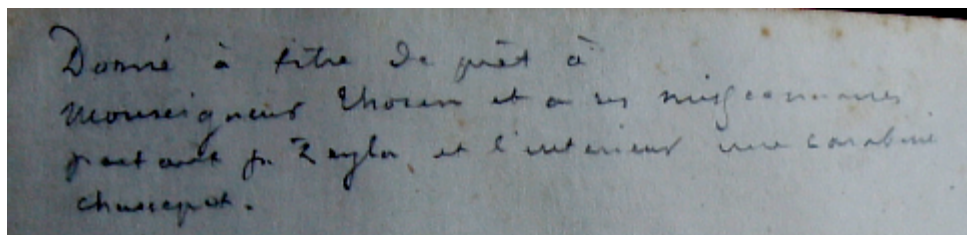 Donné à titre de prêt à
Monseigneur Thoran et à ses missionnaires
partant pr Zeyla et l'intérieur une carabine
chassepot.